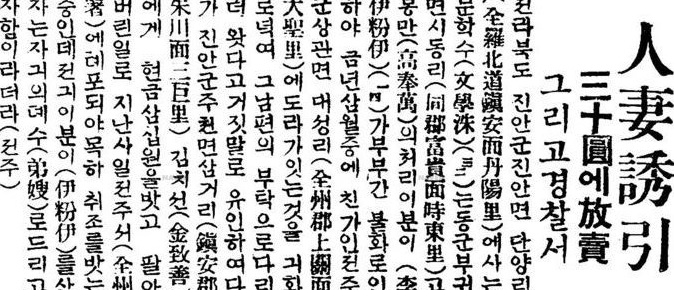 人妻誘引
三十圓에放賣
그리고경찰서
전라북도 진안군진안면 단양리
(全羅北道鎭安面丹陽里)에사는
문학수(文學洙)()는동군부귀
면시동리(同郡富貴面時東里)고
봉만(高奉萬)의처리이분이(李
伊粉伊)()가부부간 불화로인
하야 금년삼월중에 친가인전주
군상관면 대성리(全州郡上關面
大聖里)에도라가잇는것을 긔화
로녁여 그남편의 부탁으로다리
러 왓다고거짓말로 유인하여다
가 진안군주천면삼거리(鎭安郡
朱川面三巨里) 김치선(金致善
에게 현금삼십원을밧고 팔아
버린일로 지난사일전주서(全州
署)에데포되야목하 취조를밧는
중인데전긔이분이(伊粉伊)를산
자는자긔의뎨수(弟嫂)로드리고
자함이라더라(전주)